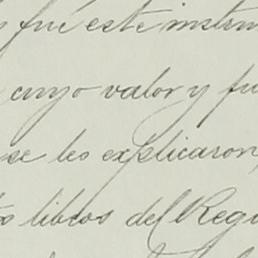 fué este instru
cuyo valor y fu
se les explicaron,
libros del Regi